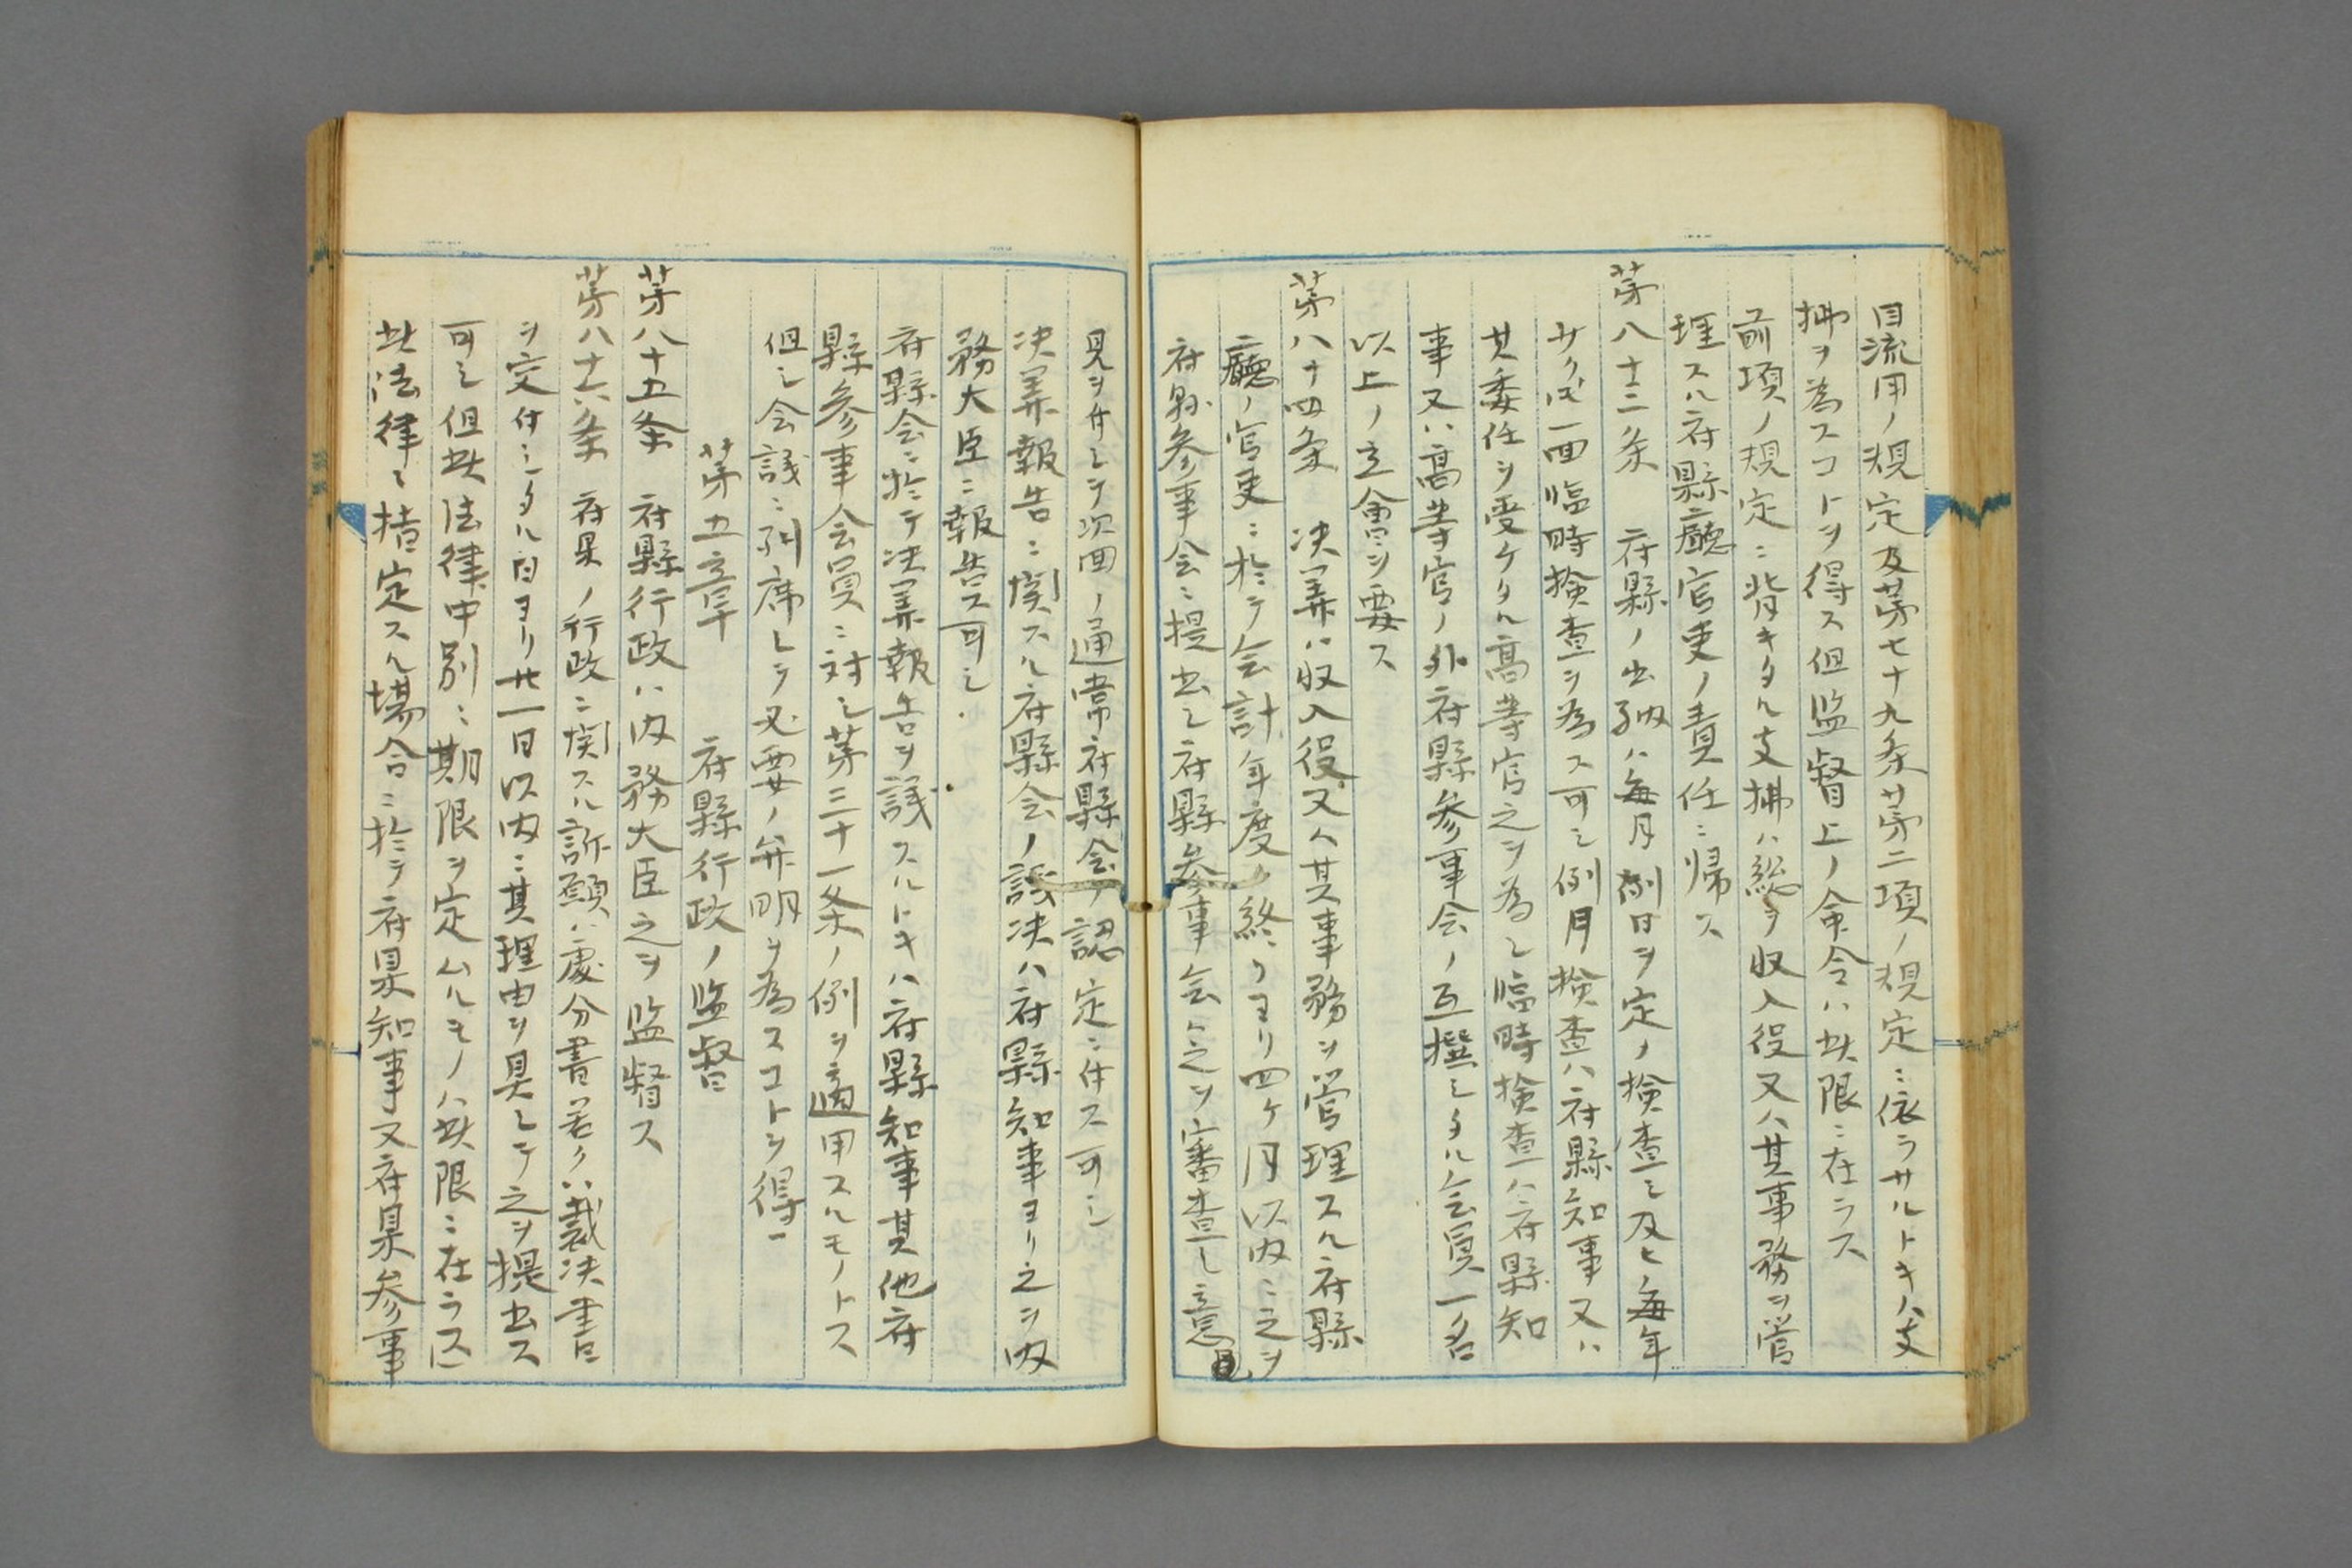 目流用ノ規定及第七十九条第二項ノ規定ニ依ラサルトキハ支
拂ヲ為スコトヲ得ス但監督上ノ命令ハ此限ニ在ラス
前項ノ規定ニ背キタル支拂ハ総テ収入役又ハ其事務ヲ管
理スル府縣廳官吏ノ責任ニ帰ス
第八十三条　府縣ノ出納ハ毎月例日ヲ定メ検査シ及ヒ毎年
少クモ一回臨時検査ヲ為ス可シ例月検査ハ府縣知事又ハ
其委任ヲ受ケタル髙等官之ヲ為シ臨時検査ハ府縣知
事又ハ髙等官ノ外府縣参事会ノ互撰シタル会員一名
以上ノ立會ヲ要ス
第八十四条　决算ハ収入役又ハ其事務ヲ管理スル府縣
廳ノ官吏ニ於テ会計年度ノ終リヨリ四ケ月以内ニ之ヲ
府縣参事会ニ提出シ府縣参事会ハ之ヲ審査シ意
見ヲ付シテ次回ノ通常府縣会ノ認定ニ付ス可シ
决算報告ニ関スル府縣会ノ議决ハ府縣知事ヨリ之ヲ内
務大臣ニ報告ス可シ
府縣会ニ於テ决算報告ヲ議スルトキハ府縣知事其他府
縣参事会員ニ対シ第三十一条ノ例ヲ適用スルモノトス
但シ会議ニ列席シテ必要ノ弁明ヲ為スコトヲ得
第五章　府縣行政ノ監督
第八十五条　府縣行政ハ内務大臣之ヲ監督ス
第八十六条　府県ノ行政ニ関スル訴願ハ處分書若クハ裁决書
ヲ交付シタル日ヨリ廿一日以内ニ其理由ヲ具シテ之ヲ提出ス
可シ但此法律中別ニ期限ヲ定ムルモノハ此限ニ在ラス
此法律ニ指定スル場合ニ於テ府県知事又府県参事